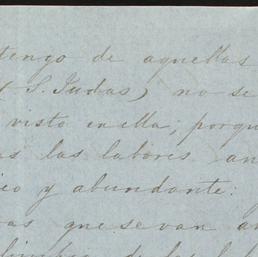 tengo de aquellas
S. Judas) no se
visto en ella; porqu
as las labores an
eo y abundante:
as que se van a
de las l